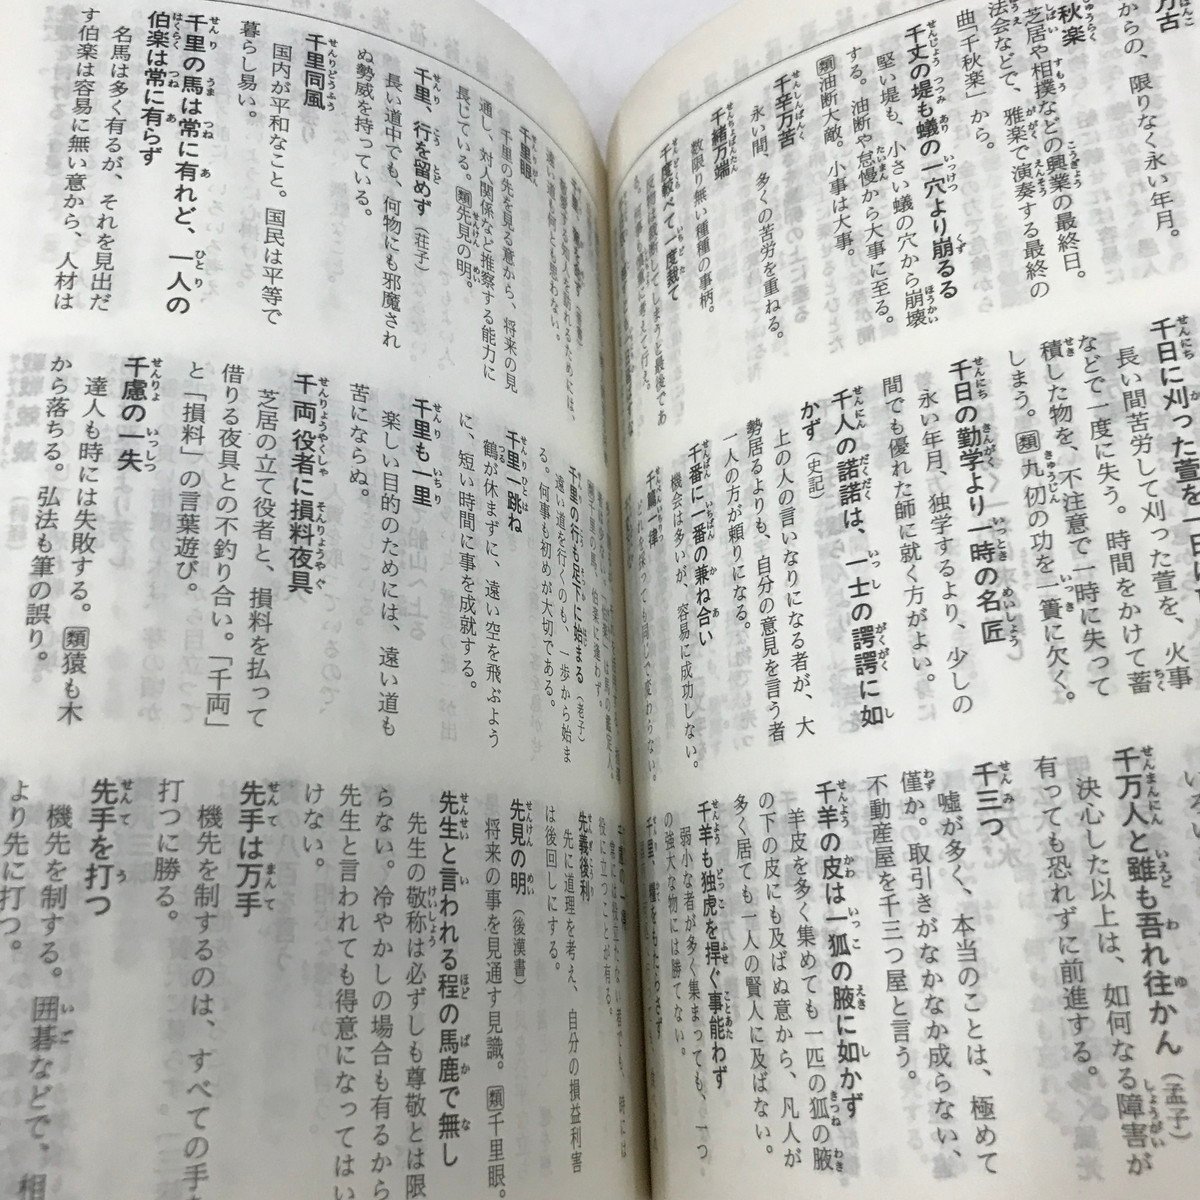 万古
からの、限りなく永い年月。
秋楽
芝居や相撲などの興業の最終日。
法会などで、雅楽で演奏する最終の
曲「千秋楽」から。
千丈の堤も蟻の一穴より崩るる
堅い堤も、小さい蟻の穴から崩壊
する。油断や怠慢から大事に至る。
類油断大敵。小事は大事。
千辛万苦
永い間、多くの苦労を重ねる。
千緒万端
数限り無い種種の事柄。
千度較べて一度裁て
千日に刈った萱を一日に
長い間苦労して刈った萱を、火事
などで一度に失う。時間をかけて蓄
積した物を、不注意で一時に失って
しまう。類九仞の功を一簣に欠く。
千日の勤学より一時の名匠
永い年月、独学するより、少しの
間でも優れた師に就く方がよい。
千人の諾諾は、一士の諤諤に如
かず（史記）
上の人の言いなりになる者が、大
勢居るよりも、自分の意見を言う者
一人の方が頼りになる。
千番に一番の兼ね合い
機会は多いが、容易に成功しない。
千篇一律
千万人と雖も吾れ往かん（孟子）
決心した以上は、如何なる障害が
有っても恐れずに前進する。
千三つ
嘘が多く、本当のことは、極めて
僅か。取引きがなかなか成らない、
不動産屋を千三つ屋と言う。
千羊の皮は一狐の腋に如かず
羊皮を多く集めても一匹の狐の腋
の下の皮にも及ばぬ意から、凡人が
多く居ても一人の賢人に及ばない。
千羊も独虎を捍ぐ事能わず
弱小な者が多く集まっても、一つ
の強大な物には勝てない。
遠い道も何とも思わない。
千里眼
千里の先を見る意から、将来の見
通し、対人関係など推察する能力に
長じている。類先見の明。
千里、行を留めず（荘子）
長い道中でも、何物にも邪魔され
ぬ勢威を持っている。
千里同風
国内が平和なこと。国民は平等で
暮らし易い。
千里の馬は常に有れど、一人の
伯楽は常に有らず
名馬は多く有るが、それを見出だ
す伯楽は容易に無い意から、人材は
千里の行も足下に始まる（老子）
遠い道を行くのも、一歩から始ま
る。何事も初めが大切である。
千里一跳ね
鶴が休まずに、遠い空を飛ぶよう
に、短い時間に事を成就する。
千里も一里
楽しい目的のためには、遠い道も
苦にならぬ。
千両役者に損料夜具
芝居の立て役者と、損料を払って
借りる夜具との不釣り合い。「千両」
と「損料」の言葉遊び。
千慮の一失
達人も時には失敗する。類猿も木
から落ちる。弘法も筆の誤り。
先義後利
先に道理を考え、自分の損益利害
は後回しにする。
先見の明（後漢書）
将来の事を見通す見識。類千里眼。
先生と言われる程の馬鹿で無し
先生の敬称は必ずしも尊敬とは限
らない。冷やかしの場合も有るから
先生と言われても得意になってはい
けない。
先手は万手
機先を制するのは、すべての手を
打つに勝る。
先手を打つ
機先を制する。囲碁などで、相
より先に打つ。